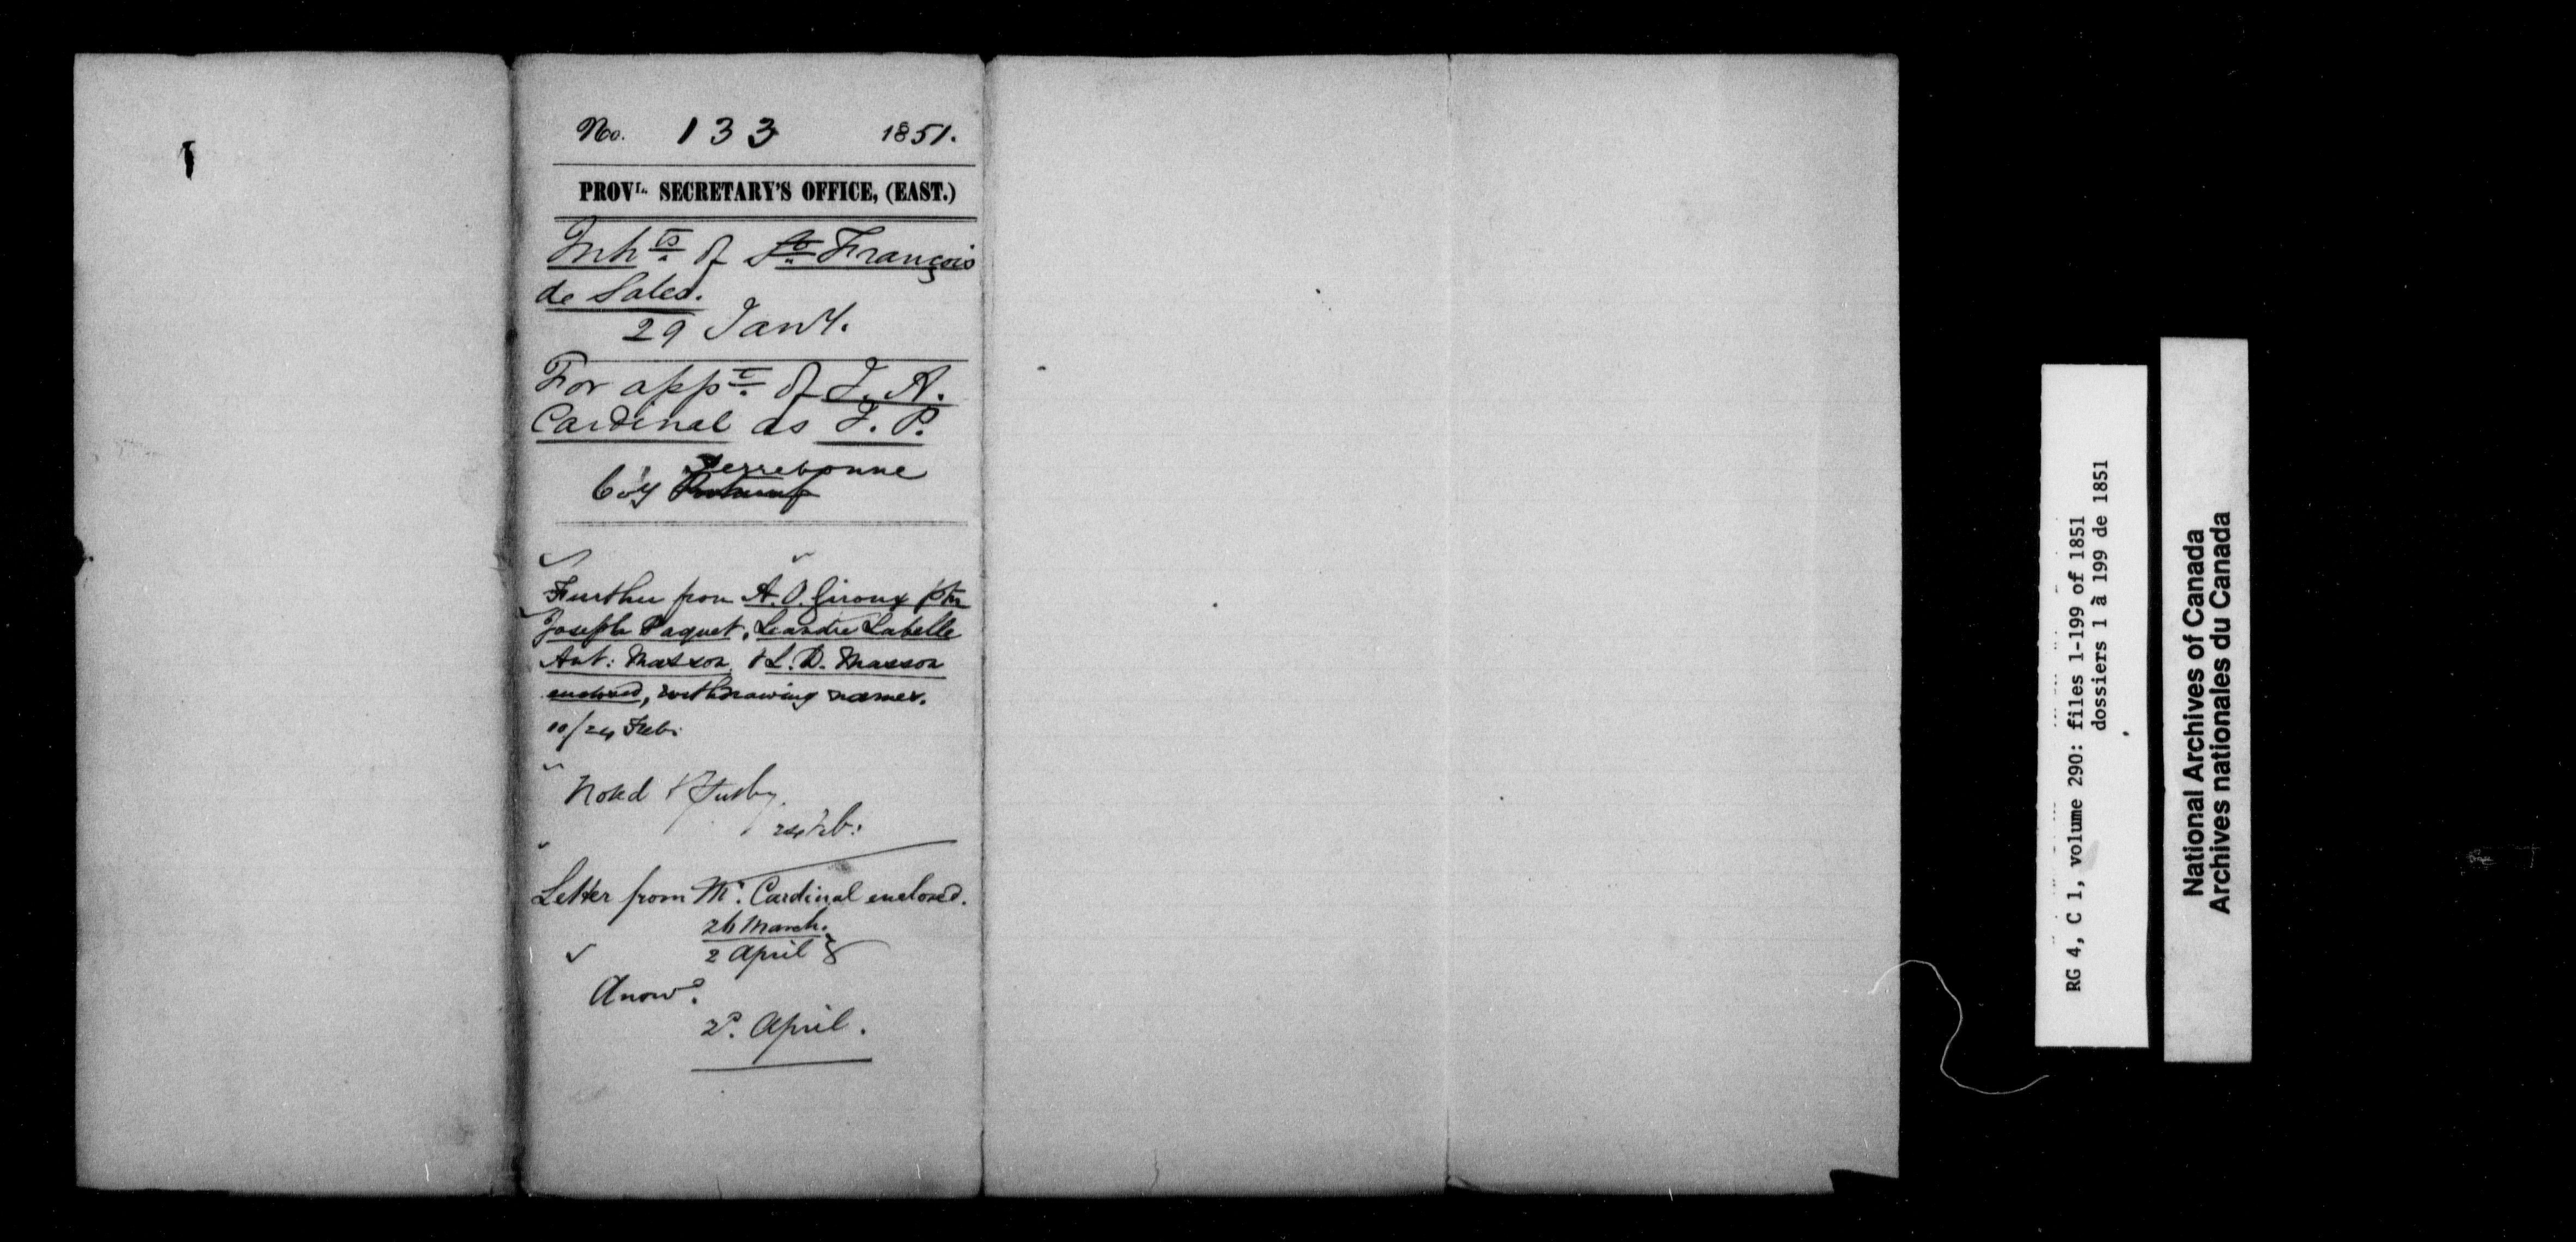 No. 133 1851.
PROVL. SECRETARY'S OFFICE, (EAST.)
Inhts of St François
de Sales.
29 Jany.
For appt. of J. A.
Cardinal as J. P.
Coy Terrebonne
Further from A. O. Giroux ptr
Joseph Paquet, Leandre Labelle
Ant: Masson, & L. D. Masson
enclosed, withdrawing names.
10/24 Feb:
Noted
24 Feb:
Letter from Mr. Cardinal enclosed.
26 March.
2 April
Answd.
2d. April.
RG 4, C 1, volume 290: files 1-199 of 1851
dossiers 1 à 199 de 1851
National Archives of Canada
Archives nationales du Canada